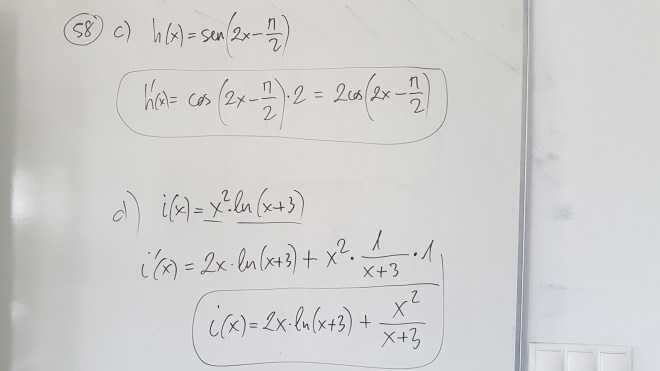 58 c) h(x) = sen(2x - π/2)
h'(x) = cos(2x - π/2) · 2 = 2cos(2x - π/2)
d) i(x) = x² · ln(x+3)
i'(x) = 2x · ln(x+3) + x² · 1/(x+3) · 1
i(x) = 2x · ln(x+3) + x²/(x+3)